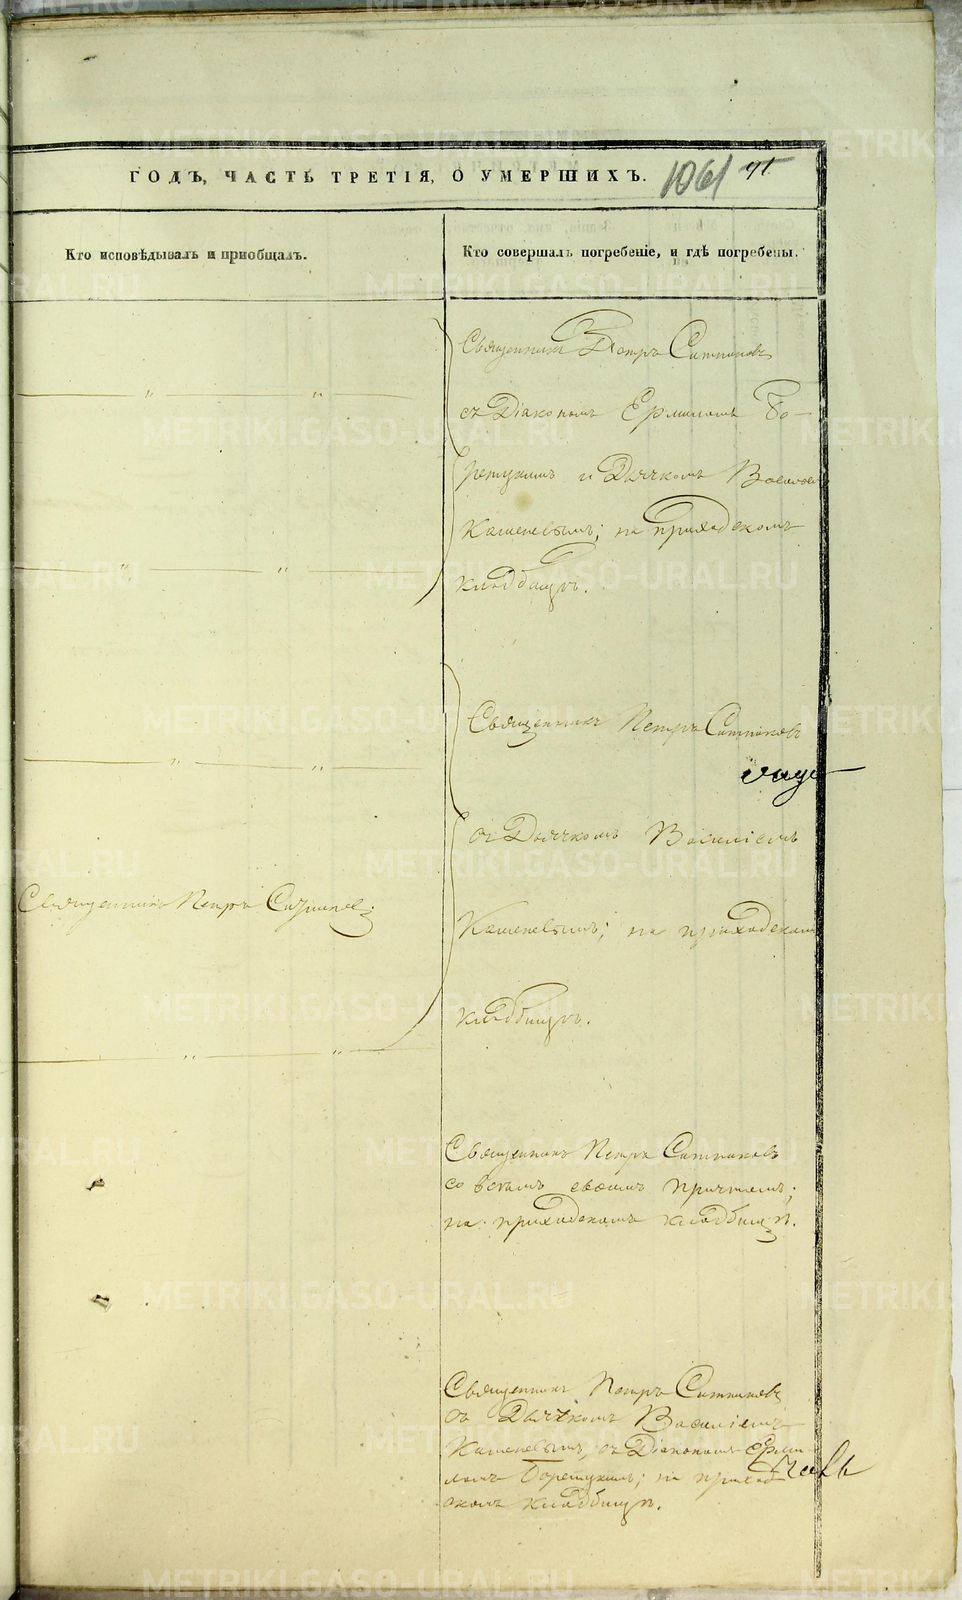 ГОДЪ, ЧАСТЬ ТРЕТІЯ, О УМЕРШИХЪ. 1061 91
Кто исповѣдывалъ и пріобщалъ.
Кто совершалъ погребеніе, и гдѣ погребены.
Священникъ Петръ Ситниковъ
съ Діакономъ Ермиломъ Бо-
рецкимъ и Дьячкомъ
Каменевымъ; на приходскомъ
кладбищѣ.
Священникъ Петръ Ситниковъ
съ Дьячкомъ Василіемъ
Священникъ Петръ
Каменевымъ; на приходскомъ
кладбищѣ.
Священникъ Петръ Ситниковъ
со всѣмъ своимъ причтомъ;
на приходскомъ кладбищѣ.
Священникъ Петръ Ситниковъ
съ Дьячкомъ Василіемъ
Каменевымъ, съ Діакономъ Ерми-
ломъ Борецкимъ; на приход
скомъ кладбищѣ.
METRIKI.GASO-URAL.RU